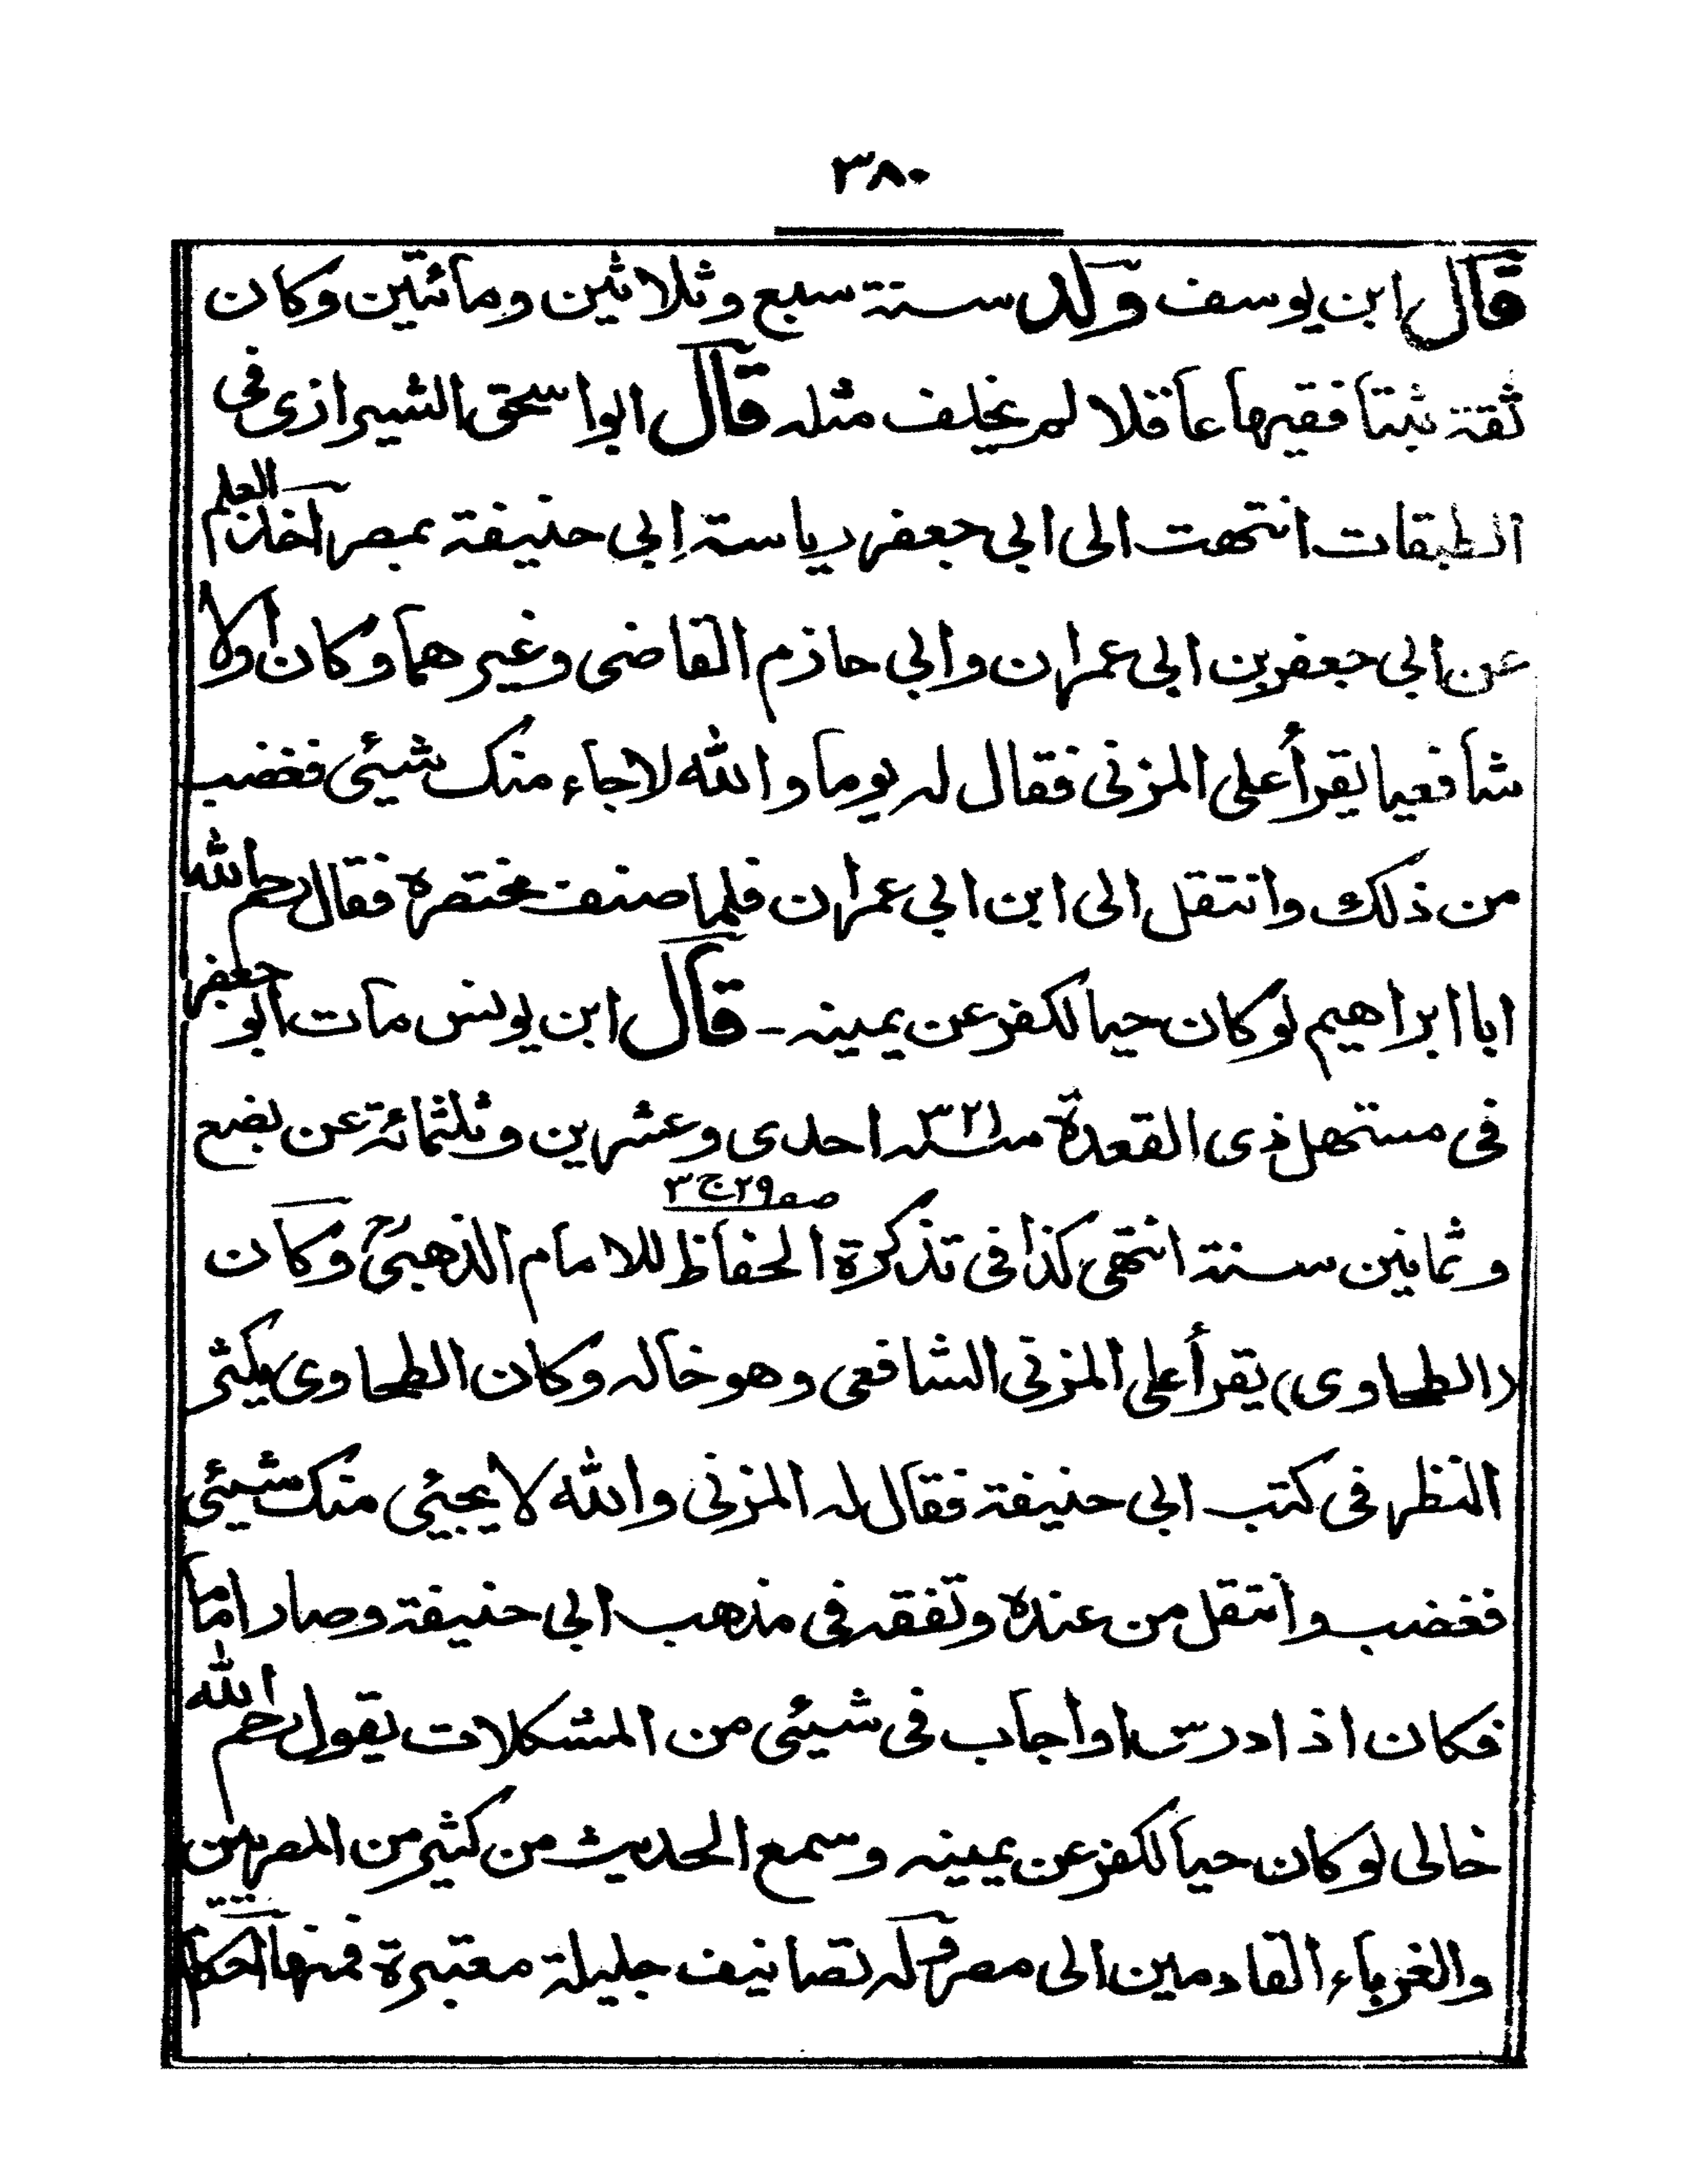 ٣٨٠
قال ابن يوسف ولد سنة سبع وثلاثين ومأئتين وكان
ثقة ثبتا فقيها عاقلا لم يخلف مثله قال ابو اسحق الشيرازى فى
الطبقات انتهت الى ابى جعفر رياسة ابي حنيفة بمصر اخذ العلم
عن ابي جعفر بن ابى عمران وابي حازم القاضى وغيرهما وكان اولا
شافعيا يقرأ على المزنى فقال له يوما والله لا جاء منك شيئى فغضب
من ذلك وانتقل الى ابن ابي عمران فلما صنف مختصره فقال رحم الله
ابا ابراهيم لو كان حيا لكفر عن يمينه - قال ابن يونس مات ابو جعفر
فى مستهل ذى القعدة سنه ٣٢١ احدى وعشرين وثلثمائة عن بضع
وثمانين سنة انتهى كذا فى تذكرة الحفاظ للامام الذهبىؒ وكان
صـ ٢٩ ج ٣
(الطحاوى) يقرأ على المزنى الشافعى وهو خاله وكان الطحاوى يكثر
النظر فى كتب ابى حنيفة فقال له المزنى والله لا يجيئى منك شيئى
فغضب وانتقل من عنده وتفقه فى مذهب ابى حنيفة وصار اماما
فكان اذا درس او اجاب فى شيئى من المشكلات يقول رحم الله
خالى لو كان حيا لكفر عن يمينه وسمع الحديث من كثير من المصريين
والغرباء القادمين الى مصر وله تصانيف جليلة معتبرة فمنها احكام